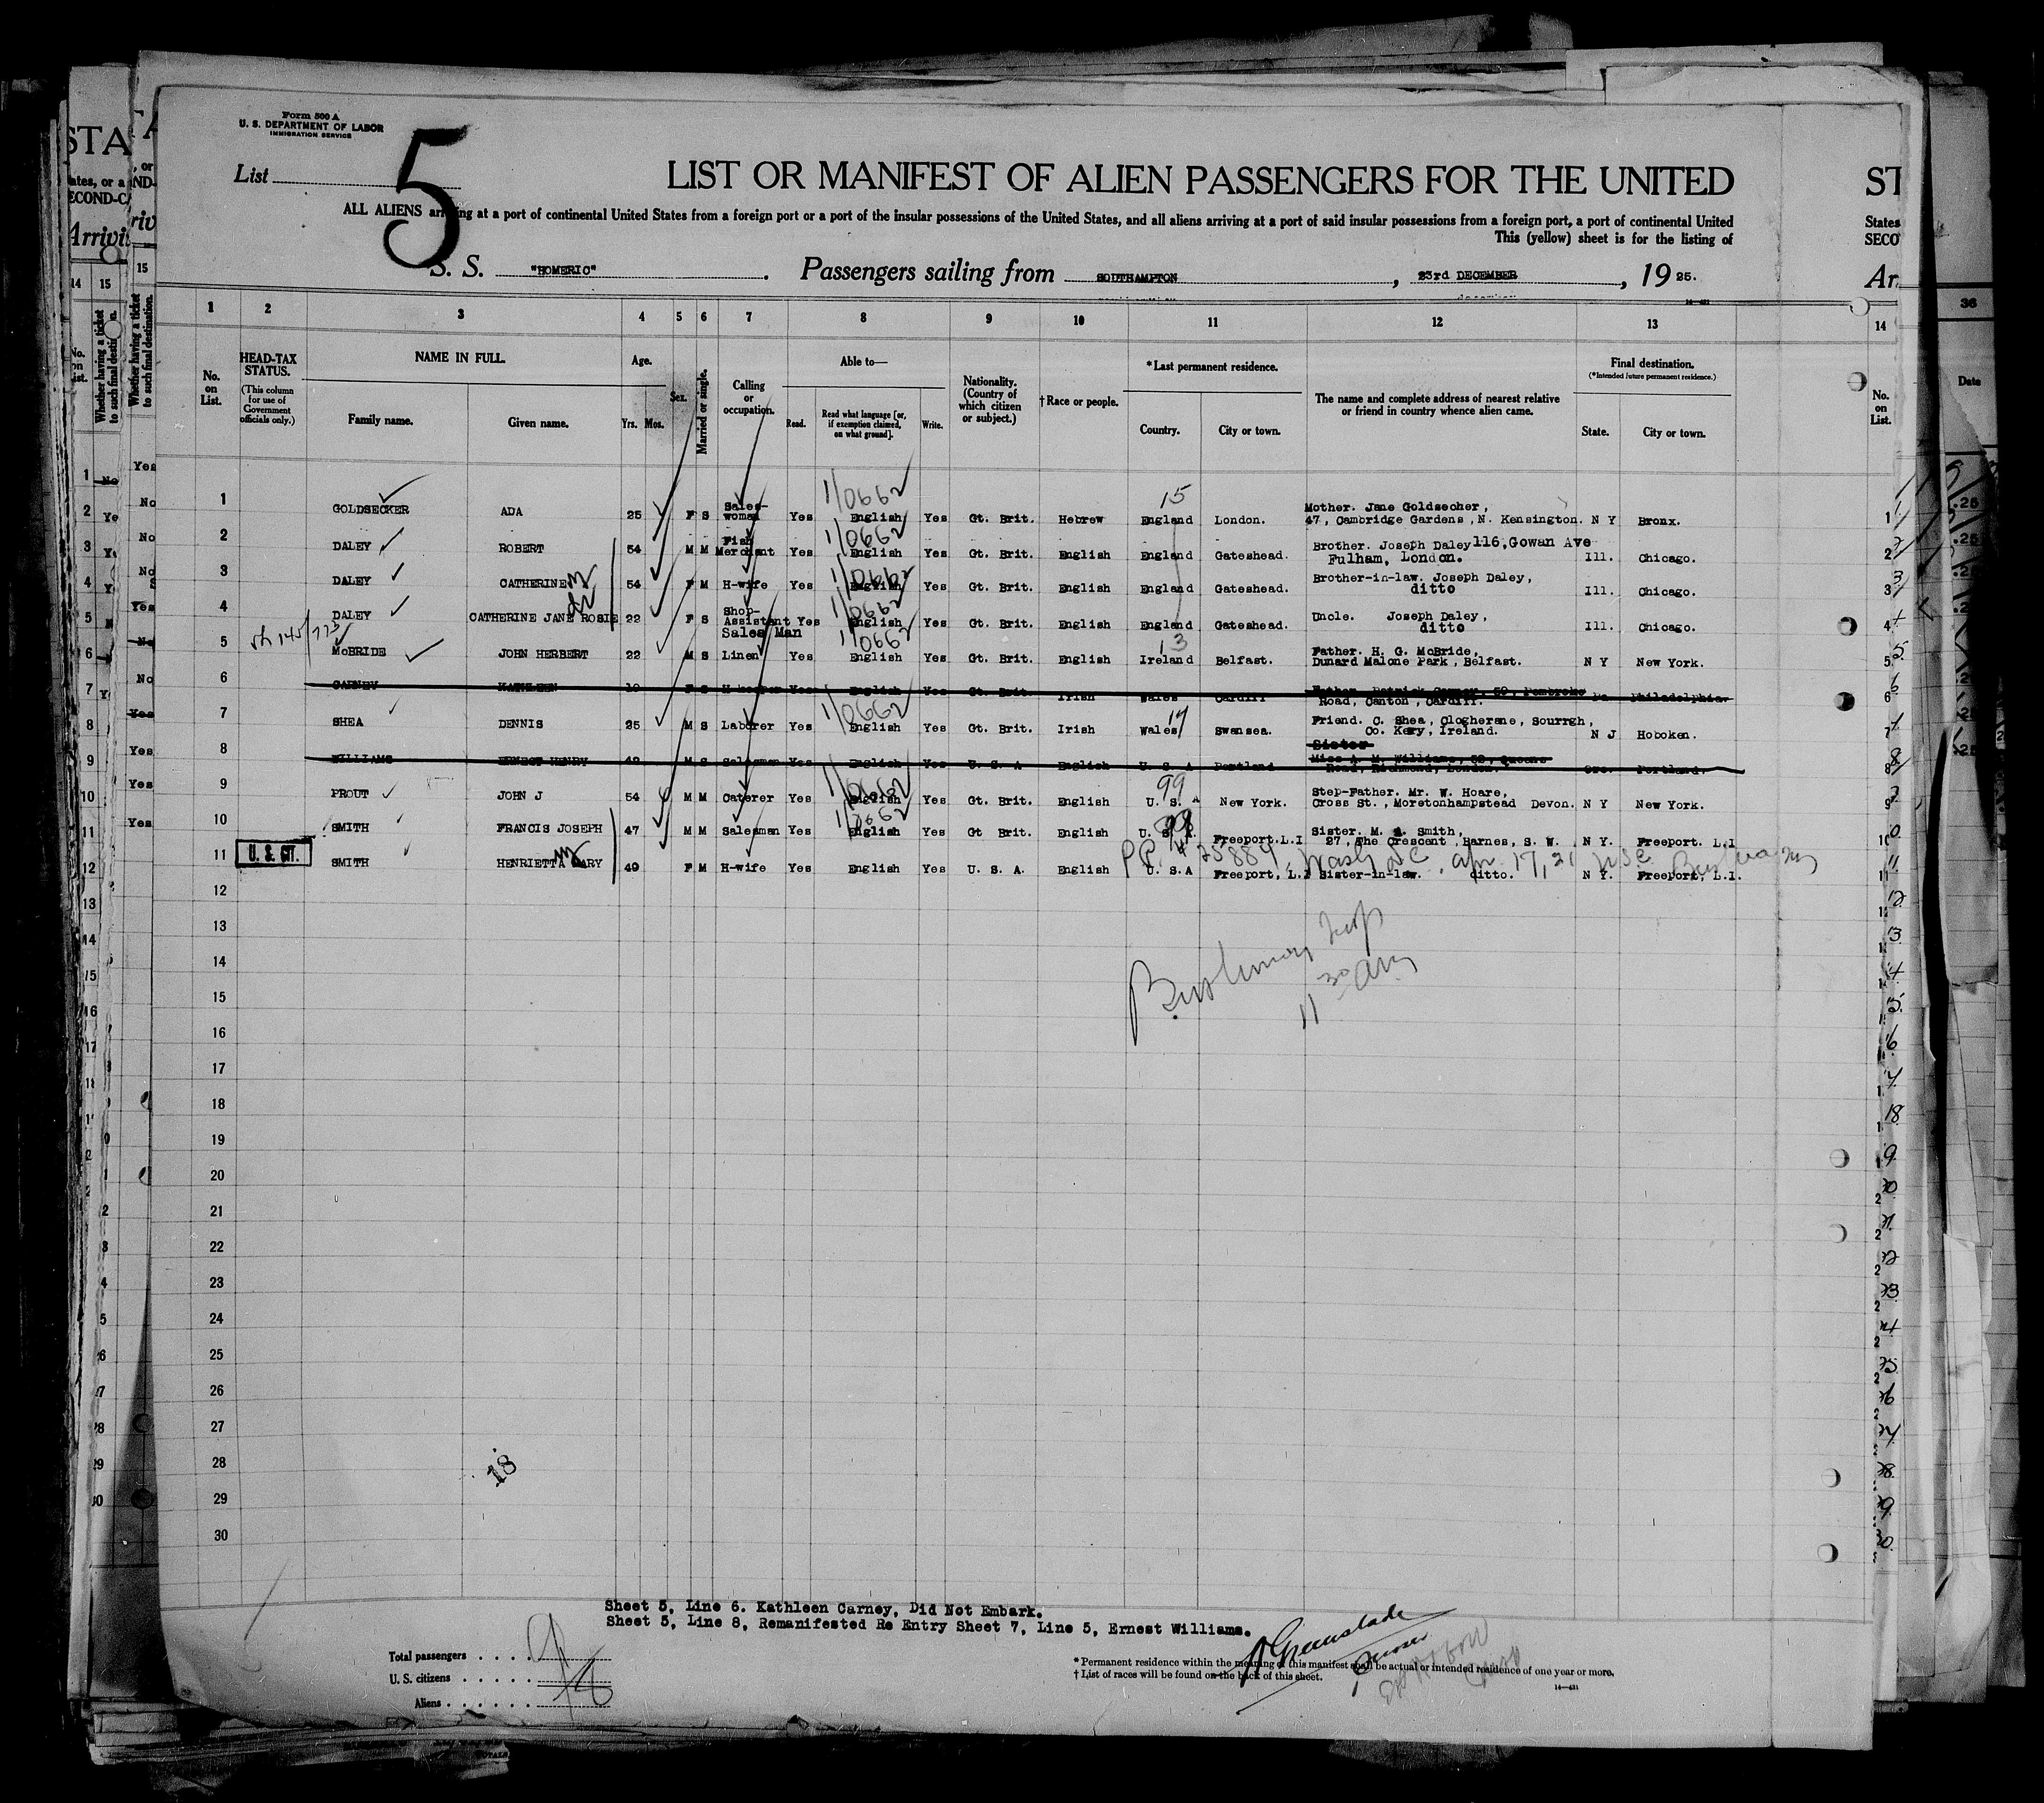 Form 500 A
U. S. DEPARTMENT OF LABOR
IMMIGRATION SERVICE
List 5
LIST OR MANIFEST OF ALIEN PASSENGERS FOR THE UNITED ST
ALL ALIENS arriving at a port of continental United States from a foreign port or a port of the insular possessions of the United States, and all aliens arriving at a port of said insular possessions from a foreign port, a port of continental United States
This (yellow) sheet is for the listing of SECO
S. S. "HOMERIC". Passengers sailing from SOUTHAMPTON, 23rd DECEMBER, 1925. Ar
1 2 3 4 5 6 7 8 9 10 11 12 13 14
No. on List.
HEAD-TAX STATUS.
(This column for use of Government officials only.)
NAME IN FULL.
Family name. Given name.
Age.
Yrs. Mos.
Sex.
Married or single.
Calling or occupation.
Able to—
Read. Read what language [or, if exemption claimed, on what ground]. Write.
Nationality. (Country of which citizen or subject.)
†Race or people.
*Last permanent residence.
Country. City or town.
The name and complete address of nearest relative or friend in country whence alien came.
Final destination.
(*Intended future permanent residence.)
State. City or town.
No. on List.
1 GOLDSECKER ADA 25 F S Sales-woman Yes English Yes Gt. Brit. Hebrew England London. Mother. Jane Goldsecher, 47, Cambridge Gardens, N. Kensington. N Y Bronx.
2 DALEY ROBERT 54 M M Fish Merchant Yes English Yes Gt. Brit. English England Gateshead. Brother. Joseph Daley 116, Gowan Ave Fulham, London. Ill. Chicago.
3 DALEY CATHERINE 54 F M H-wife Yes English Yes Gt. Brit. English England Gateshead. Brother-in-law. Joseph Daley, ditto Ill. Chicago.
4 DALEY CATHERINE JANE ROSIE 22 F S Shop-Assistant Yes English Yes Gt. Brit. English England Gateshead. Uncle. Joseph Daley, ditto Ill. Chicago.
5 McBRIDE JOHN HERBERT 22 M S Sales Man Linen Yes English Yes Gt. Brit. English Ireland Belfast. Father. H. G. McBride, Dunard Malone Park, Belfast. N Y New York.
6 CARNEY KATHLEEN 19 F S Yes English Yes Gt. Brit. Irish Wales Cardiff Father. Patrick Carney, 59, Pembroke Road, Canton, Cardiff. Pa Philadelphia.
7 SHEA DENNIS 25 M S Laborer Yes English Yes Gt. Brit. Irish Wales Swansea. Friend. C. Shea, Clogherane, Sourrgh, Co. Kery, Ireland. N J Hoboken.
8 WILLIAMS ERNEST HENRY 42 M S Salesman Yes English Yes U. S. A English U. S. A Portland Sister Miss A. M. Williams, Queens Road, Richmond, London. Ore. Portland.
9 PROUT JOHN J 54 M M Caterer Yes English Yes Gt. Brit. English U. S. A New York. Step-Father. Mr. W. Hoare, Cross St., Moretonhampstead Devon. N Y New York.
10 SMITH FRANCIS JOSEPH 47 M M Salesman Yes English Yes Gt Brit. English U. S. A. Freeport.L.I Sister. M. A. Smith, 27, The Crescent, Barnes, S. W. N Y. Freeport. L.I
11 U. S. CIT. SMITH HENRIETTA MARY 49 F M H-wife Yes English Yes U. S. A. English U. S.A Freeport, L.I Sister-in-law. ditto. N Y. Freeport, L.I.
12
13
14
11 30 am
15
16
17
18
19
20
21
22
23
24
25
26
27
28
18
29
30
Sheet 5, Line 6. Kathleen Carney, Did Not Embark.
Sheet 5, Line 8, Remanifested Re Entry Sheet 7, Line 5, Ernest Williams.
Total passengers
U. S. citizens
Aliens
* Permanent residence within the meaning of this manifest shall be actual or intended residence of one year or more.
† List of races will be found on the back of this sheet.